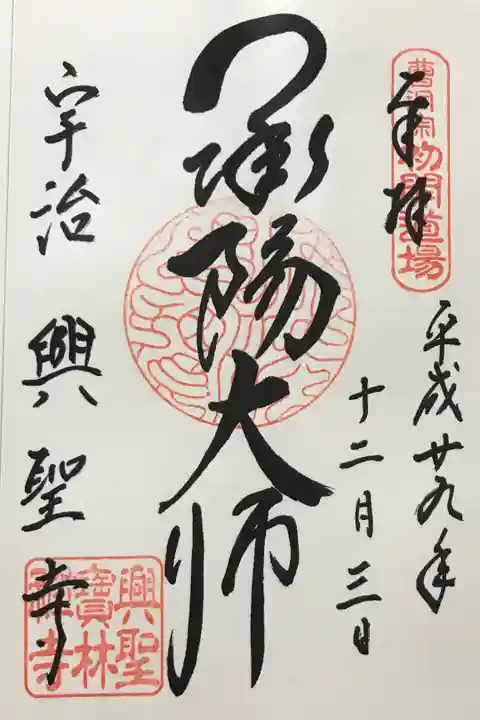 奉拝
曹洞宗初開道場
平成廿九年
十二月三日
承陽大師
宇治 興聖寺
興聖
寶林
禅寺